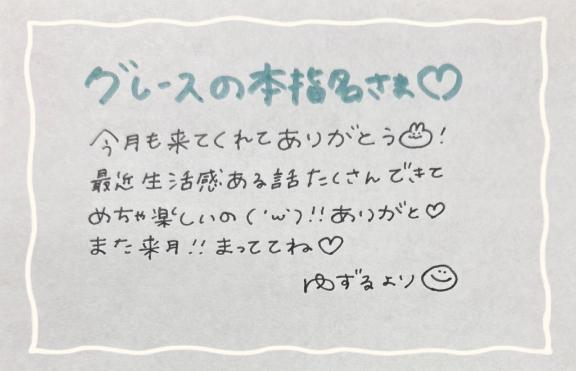 グレースの本指名さま♡
今月も来てくれてありがとう!
最近生活感ある話たくさんできて
めちゃ楽しいの('ω')!!ありがと♡
また来月!!まっててね♡
ゆずるより